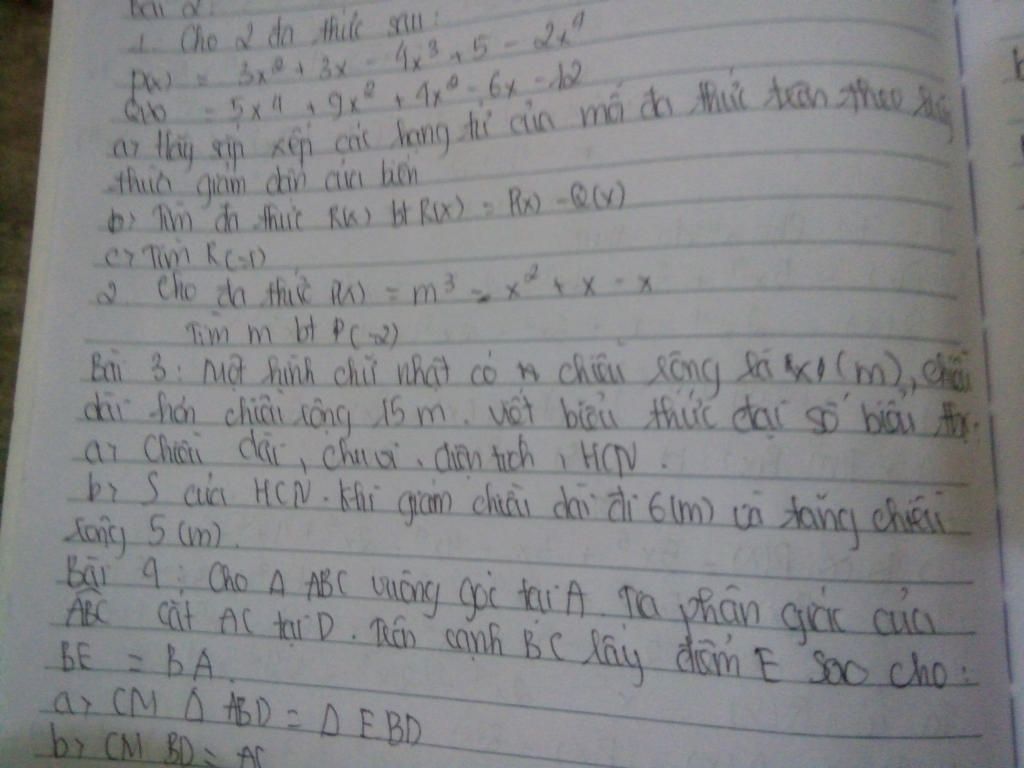 Bài 2:
1. Cho 2 đa thức sau:
P(x) = 3x² + 3x - 4x³ + 5 - 2x⁴
Q(x) = 5x⁴ + 9x² + 4x² - 6x - 12
a> Hãy sắp xếp các hạng tử của mỗi đa thức trên theo lũy
thừa giảm dần của biến
b> Tìm đa thức R(x) bt R(x) = P(x) - Q(x)
c> Tìm R(-1)
2 Cho đa thức P(x) = m³ - x² + x - x
Tìm m bt P(-2)
Bài 3: Một hình chữ nhật có chiều rộng là x (m), chiều
dài hơn chiều rộng 15 m. Viết biểu thức đại số biểu thị:
a> Chiều dài, chu vi, diện tích, HCN.
b> S của HCN. Khi giảm chiều dài đi 6(m) và tăng chiều
rộng 5 (m).
Bài 4: Cho Δ ABC vuông góc tại A. Tia phân giác của
ABC cắt AC tại D. Trên cạnh BC lấy điểm E sao cho:
BE = BA.
a> CM Δ ABD = Δ EBD
b> CM BD = AC